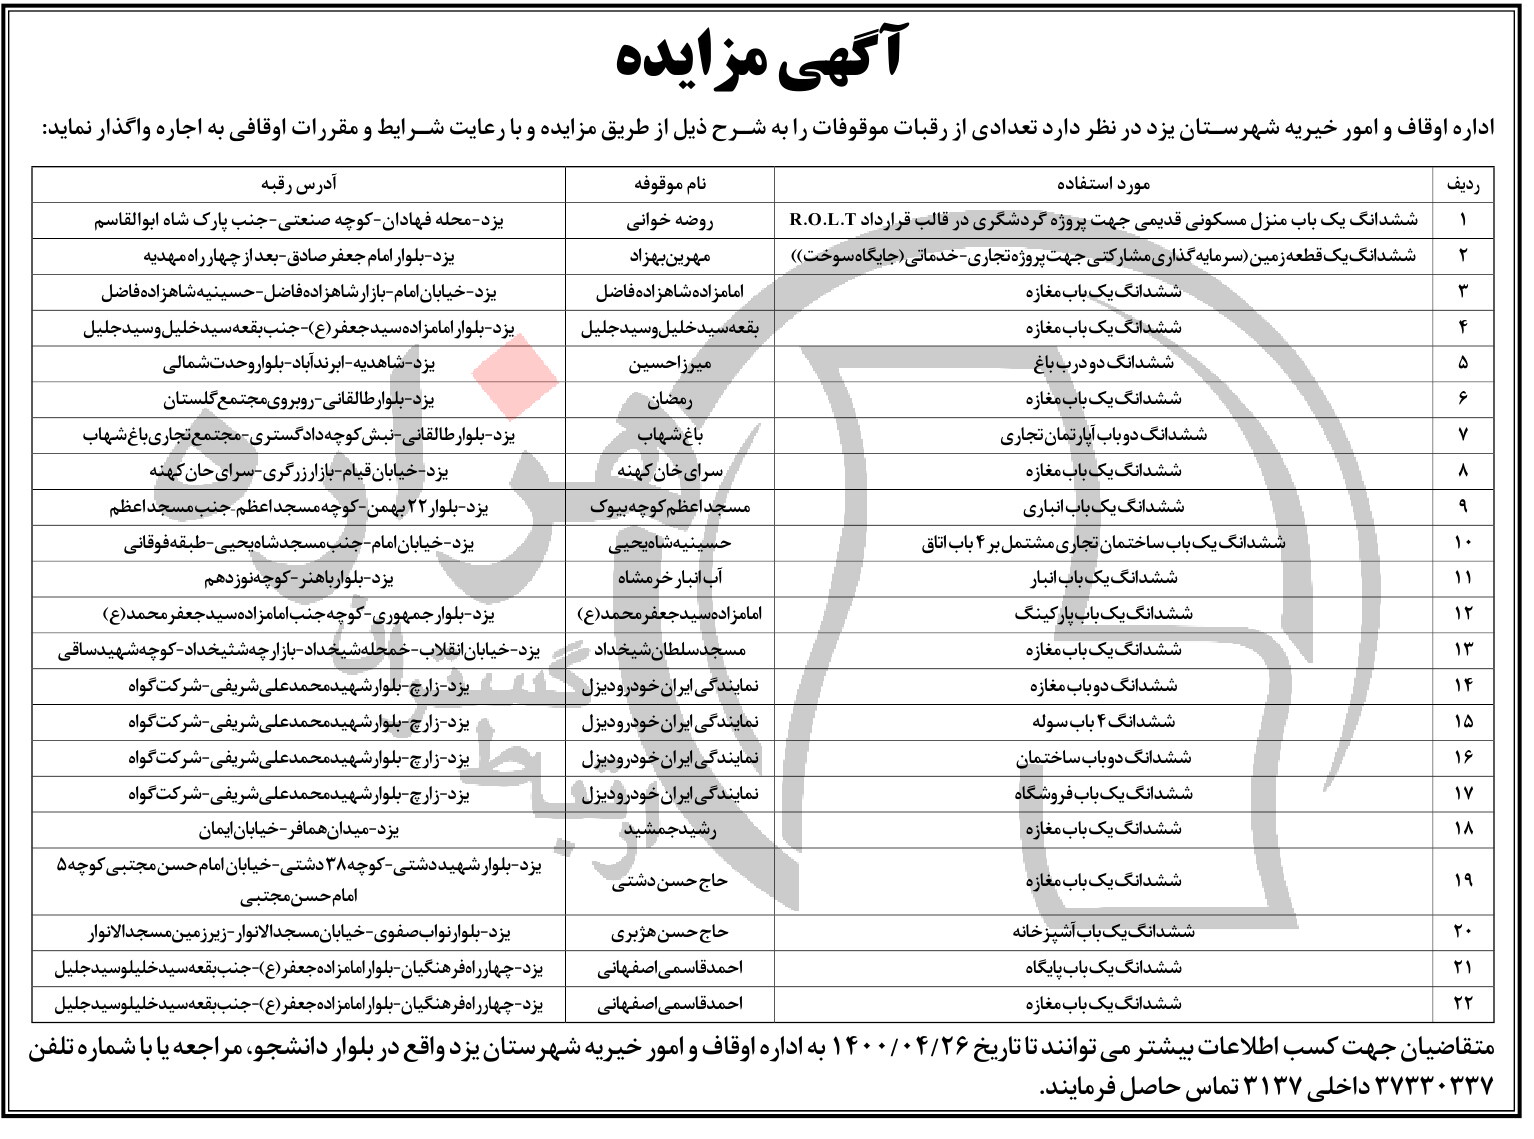 آگهی مزایده
اداره اوقاف و امور خیریه شهرستان یزد در نظر دارد تعدادی از رقبات موقوفات را به شرح ذیل از طریق مزایده و با رعایت شرایط و مقررات اوقافی به اجاره واگذار نماید:
ردیف مورد استفاده نام موقوفه آدرس رقبه
۱ ششدانگ یک باب منزل مسکونی قدیمی جهت پروژه گردشگری در قالب قرارداد R.O.L.T روضه خوانی یزد-محله فهادان-کوچه صنعتی-جنب پارک شاه ابوالقاسم
۲ ششدانگ یک قطعه زمین (سرمایه گذاری مشارکتی جهت پروژه تجاری-خدماتی (جایگاه سوخت)) مهرین بهزاد یزد-بلوار امام جعفر صادق-بعد از چهار راه مهدیه
۳ ششدانگ یک باب مغازه امامزاده شاهزاده فاضل یزد-خیابان امام-بازار شاهزاده فاضل-حسینیه شاهزاده فاضل
۴ ششدانگ یک باب مغازه بقعه سید خلیل و سید جلیل یزد-بلوار امامزاده سید جعفر (ع)-جنب بقعه سید خلیل و سید جلیل
۵ ششدانگ دو درب باغ میرزا حسین یزد-شاهدیه-ابرندآباد-بلوار وحدت شمالی
۶ ششدانگ یک باب مغازه رمضان یزد-بلوار طالقانی-روبروی مجتمع گلستان
۷ ششدانگ دو باب آپارتمان تجاری باغ شهاب یزد-بلوار طالقانی-نبش کوچه دادگستری-مجتمع تجاری باغ شهاب
۸ ششدانگ یک باب مغازه سرای خان کهنه یزد-خیابان قیام-بازار زرگری-سرای حان کهنه
۹ ششدانگ یک باب انباری مسجد اعظم کوچه بیوک یزد-بلوار ۲۲ بهمن-کوچه مسجد اعظم-جنب مسجد اعظم
۱۰ ششدانگ یک باب ساختمان تجاری مشتمل بر ۴ باب اتاق حسینیه شاه یحیی یزد-خیابان امام-جنب مسجد شاه یحیی-طبقه فوقانی
۱۱ ششدانگ یک باب انبار آب انبار خرمشاه یزد-بلوار باهنر-کوچه نوزدهم
۱۲ ششدانگ یک باب پارکینگ امامزاده سید جعفر محمد (ع) یزد-بلوار جمهوری-کوچه جنب امامزاده سید جعفر محمد (ع)
۱۳ ششدانگ یک باب مغازه مسجد سلطان شیخداد یزد-خیابان انقلاب-خمحله شیخداد-بازارچه شئیخداد-کوچه شهید ساقی
۱۴ ششدانگ دو باب مغازه نمایندگی ایران خودرو دیزل یزد-زارچ-بلوار شهید محمد علی شریفی-شرکت گواه
۱۵ ششدانگ ۴ باب سوله نمایندگی ایران خودرو دیزل یزد-زارچ-بلوار شهید محمد علی شریفی-شرکت گواه
۱۶ ششدانگ دو باب ساختمان نمایندگی ایران خودرو دیزل یزد-زارچ-بلوار شهید محمد علی شریفی-شرکت گواه
۱۷ ششدانگ یک باب فروشگاه نمایندگی ایران خودرو دیزل یزد-زارچ-بلوار شهید محمد علی شریفی-شرکت گواه
۱۸ ششدانگ یک باب مغازه رشید جمشید یزد-میدان همافر-خیابان ایمان
۱۹ ششدانگ یک باب مغازه حاج حسن دشتی یزد-بلوار شهید دشتی-کوچه ۳۸ دشتی-خیابان امام حسن مجتبی کوچه ۵
امام حسن مجتبی
۲۰ ششدانگ یک باب آشپزخانه حاج حسن هژبری یزد-بلوار نواب صفوی-خیابان مسجد الانوار-زیر زمین مسجد الانوار
۲۱ ششدانگ یک باب پایگاه احمد قاسمی اصفهانی یزد-چهار راه فرهنگیان-بلوار امامزاده جعفر (ع)-جنب بقعه سید خلیلو سید جلیل
۲۲ ششدانگ یک باب مغازه احمد قاسمی اصفهانی یزد-چهار راه فرهنگیان-بلوار امامزاده جعفر (ع)-جنب بقعه سید خلیلو سید جلیل
متقاضیان جهت کسب اطلاعات بیشتر می توانند تا تاریخ ۱۴۰۰/۰۴/۲۶ به اداره اوقاف و امور خیریه شهرستان یزد واقع در بلوار دانشجو، مراجعه یا با شماره تلفن
۳۷۳۳۰۳۳۷ داخلی ۳۱۳۷ تماس حاصل فرمایند.
هزاره
گستران
ارتباط